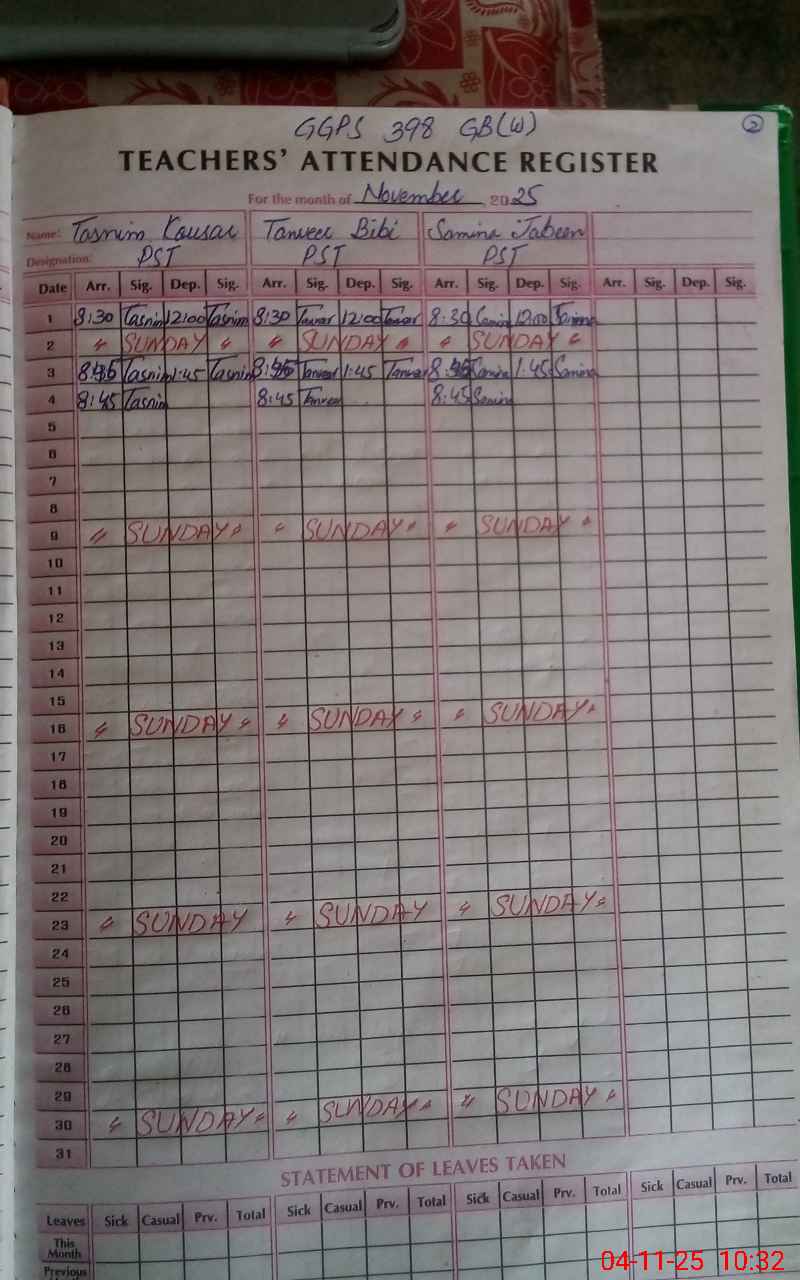 GGPS 398 GB(W) 2
TEACHERS' ATTENDANCE REGISTER
For the month of November, 2025
Name: Tasnim Kousar Tanveer Bibi Samina Jabeen
Designation: PST PST PST
Date Arr. Sig. Dep. Sig. Arr. Sig. Dep. Sig. Arr. Sig. Dep. Sig. Arr. Sig. Dep. Sig.
1 8:30 Tasnim 12:00 Tasnim 8:30 12:00 8:30 Samina 12:00 Samina
2 " SUNDAY " " SUNDAY " " SUNDAY "
3 Tasnim 1:45 Tasnim Tanveer 1:45 Tanveer Samina 1:45 Samina
4 8:45 Tasnim 8:45 Tanveer 8:45 Samina
5
6
7
8
9 " SUNDAY " " SUNDAY " " SUNDAY "
10
11
12
13
14
15
16 " SUNDAY " " SUNDAY " " SUNDAY "
17
18
19
20
21
22
23 " SUNDAY " SUNDAY " SUNDAY "
24
25
26
27
28
29
30 " SUNDAY " " SUNDAY " " SUNDAY "
31
STATEMENT OF LEAVES TAKEN
Leaves Sick Casual Prv. Total Sick Casual Prv. Total Sick Casual Prv. Total Sick Casual Prv. Total
This Month
Previous
04-11-25 10:32